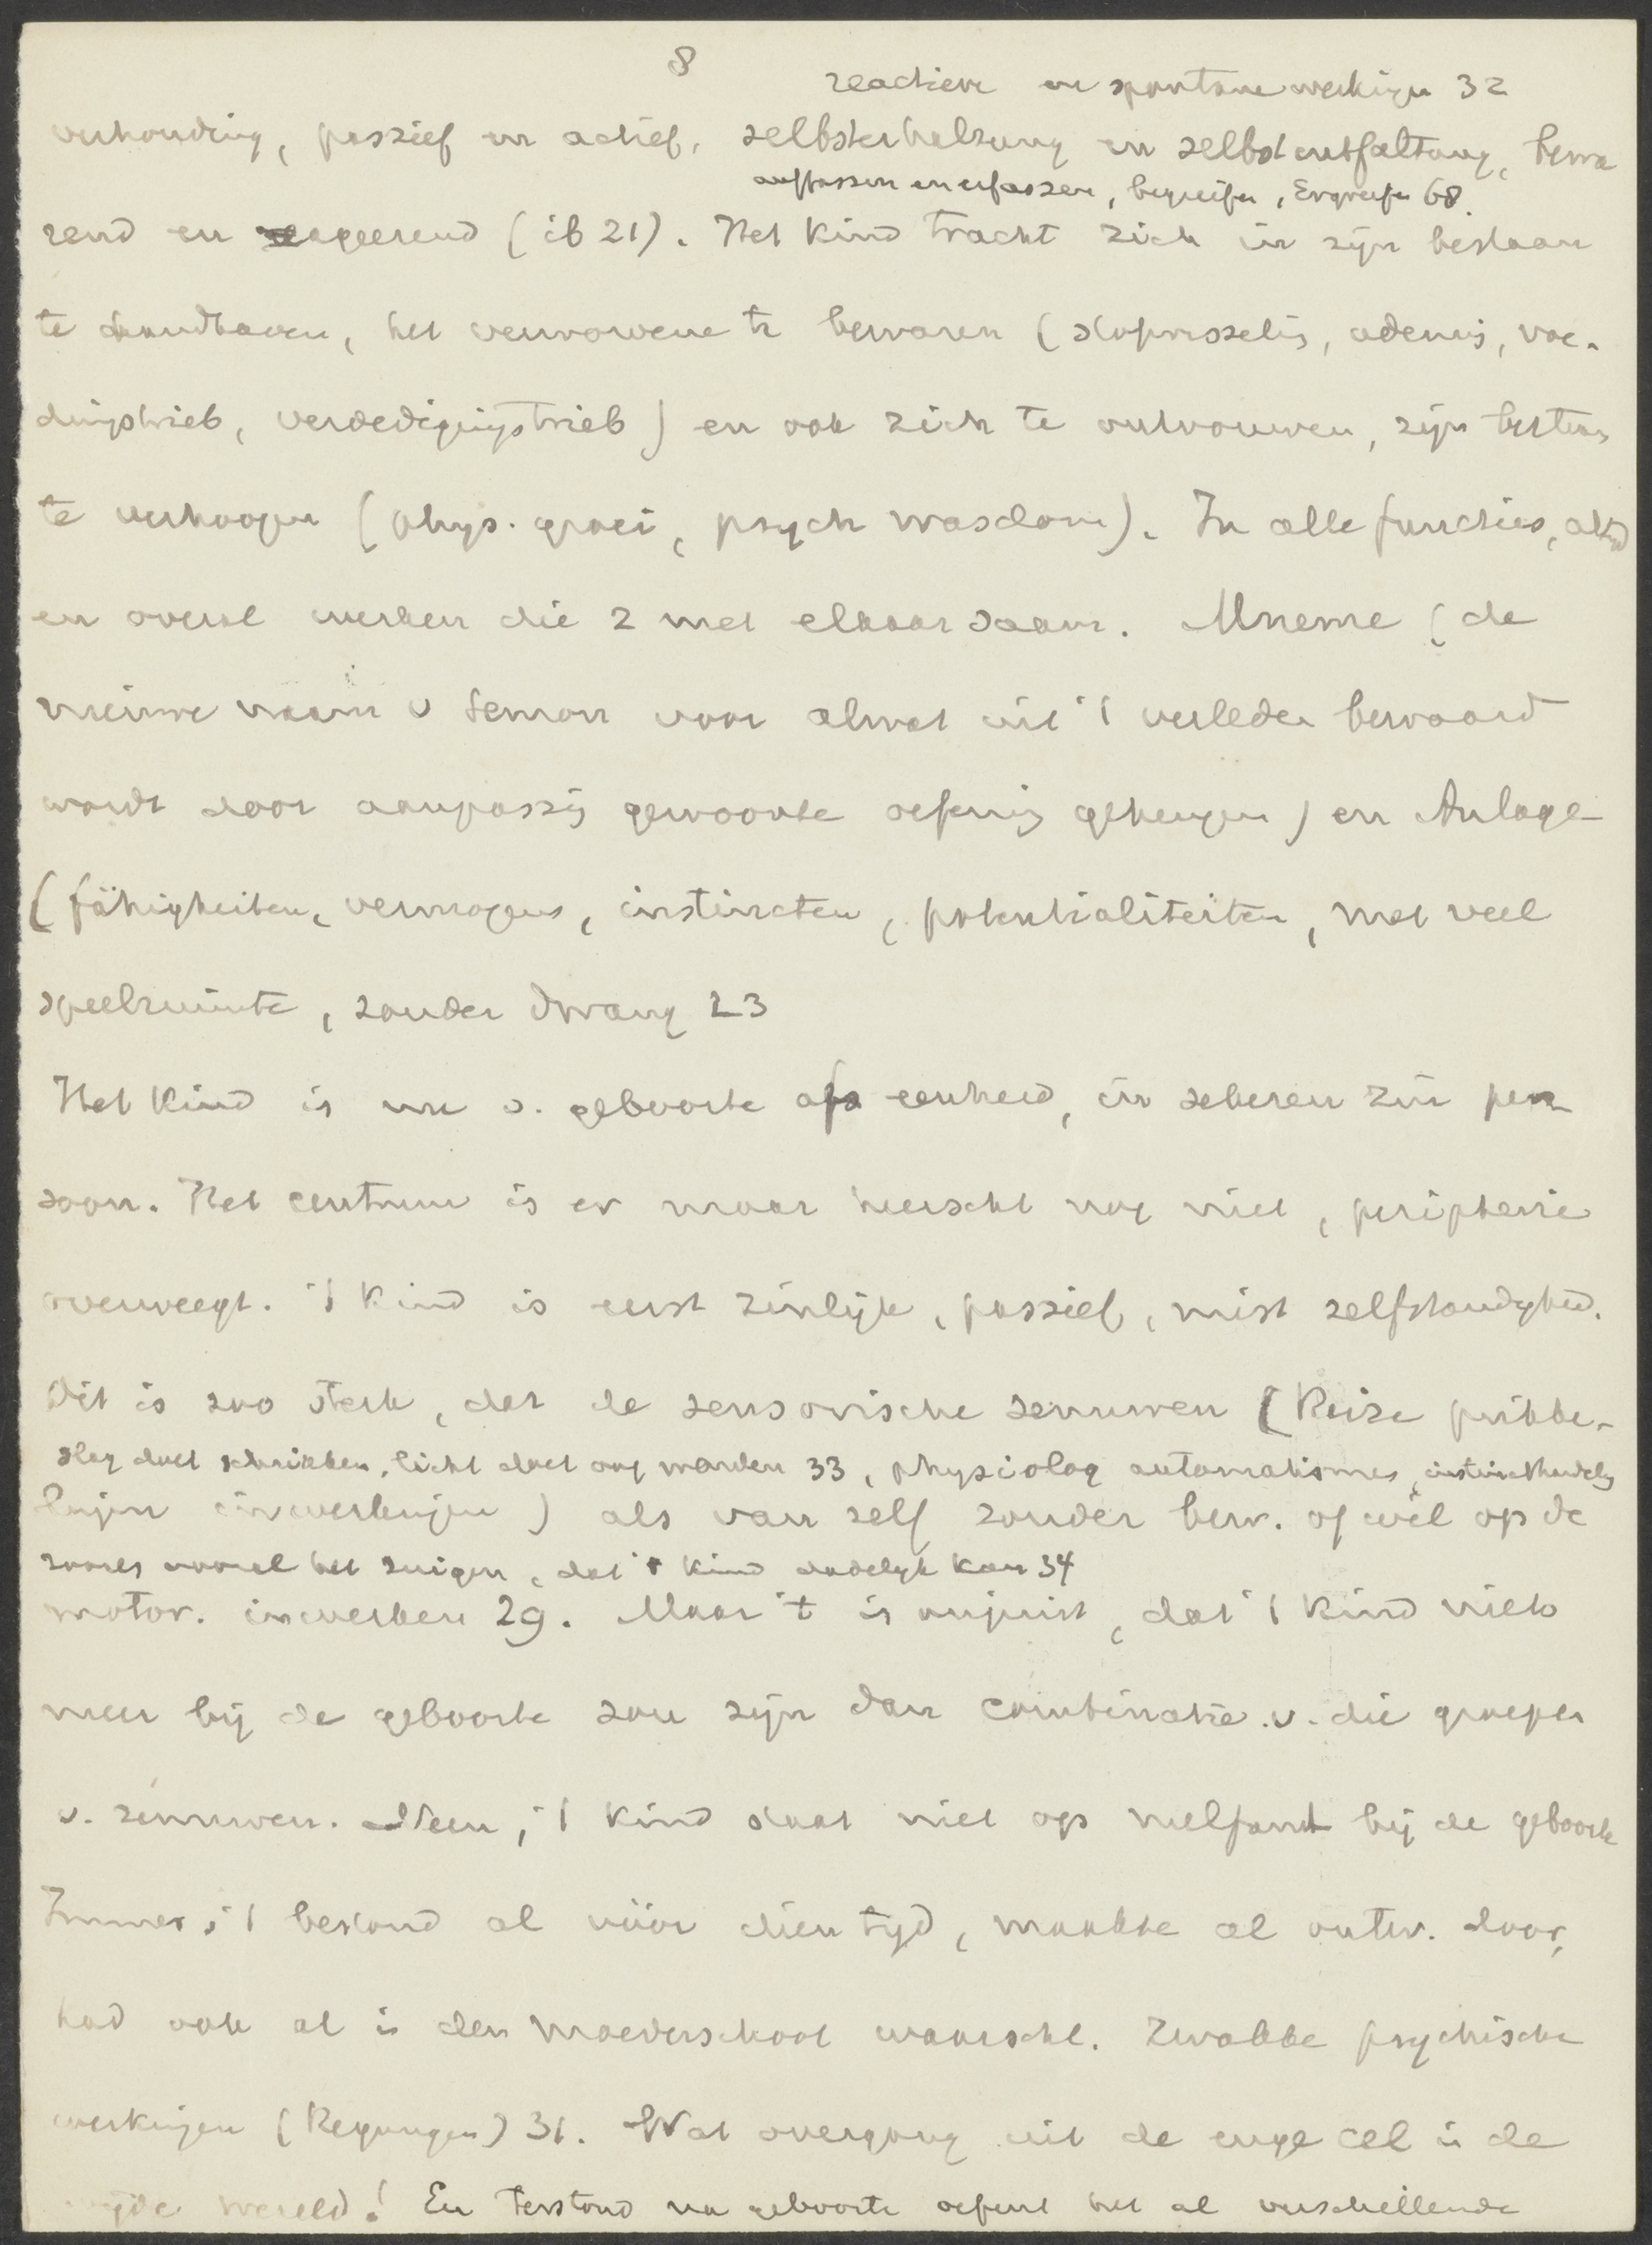 8
reactieve en spontane werkingen 32
verhouding, passief en actief, selbsterhaltung en selbstentfaltung, bewa
auffassen en erfassen, begreifen, Ergreifen 68.
rend en ageerend (ib 21). Het kind tracht zich in zijn bestaan
te handhaven, het verworvene te bewaren (stofwisseling, ademing, voe-
dingstrieb, verdedigingstrieb) en ook zich te ontvouwen, zijn bestaan
te verhoogen (phys. groei, psych wasdom). In alle functies, altijd
en overal werken die 2 met elkaar saam. Mneme (de
nieuwe naam v Semon voor alwat uit 't verleden bewaard
wordt door aanpassing gewoonte oefening geheugen) en Anlage
(fähigkeiten, vermogens, instincten, potentialiteiten, met veel
speelruimte, zonder dwang 23
Het kind is nu v. geboorte af eenheid, in zekeren zin per
soon. Het centrum is er maar heerscht nog niet, peripherie
overweegt. 't kind is eerst zinlijk, passief, mist zelfstandighed.
Dit is zoo sterk, dat de sensorische zenuwen (Reize prikke-
slag doet schrikken, licht doet oog wenden 33, physiolog automatismes, instincthandelg
lingen inwerkingen) als van zelf zonder bew. of wil op de
zooals vooral het zuigen, dat 't kind dadelijk kan 34
motor. inwerken 29. Maar 't is onjuist, dat 't kind niets
meer bij de geboorte zou zijn dan combinatie v. die groepen
v. zenuwen. Neen, 't kind staat niet op nulpunt bij de geboorte
Immers 't bestond al vóór dien tijd, maakte al ontw. door,
had ook al in den moederschoot waarschl. zwakke psychische
werkingen (Regungen) 31. Wat overgang uit de enge cel in de
wijde wereld! En terstond na geboorte oefent het al verschillende